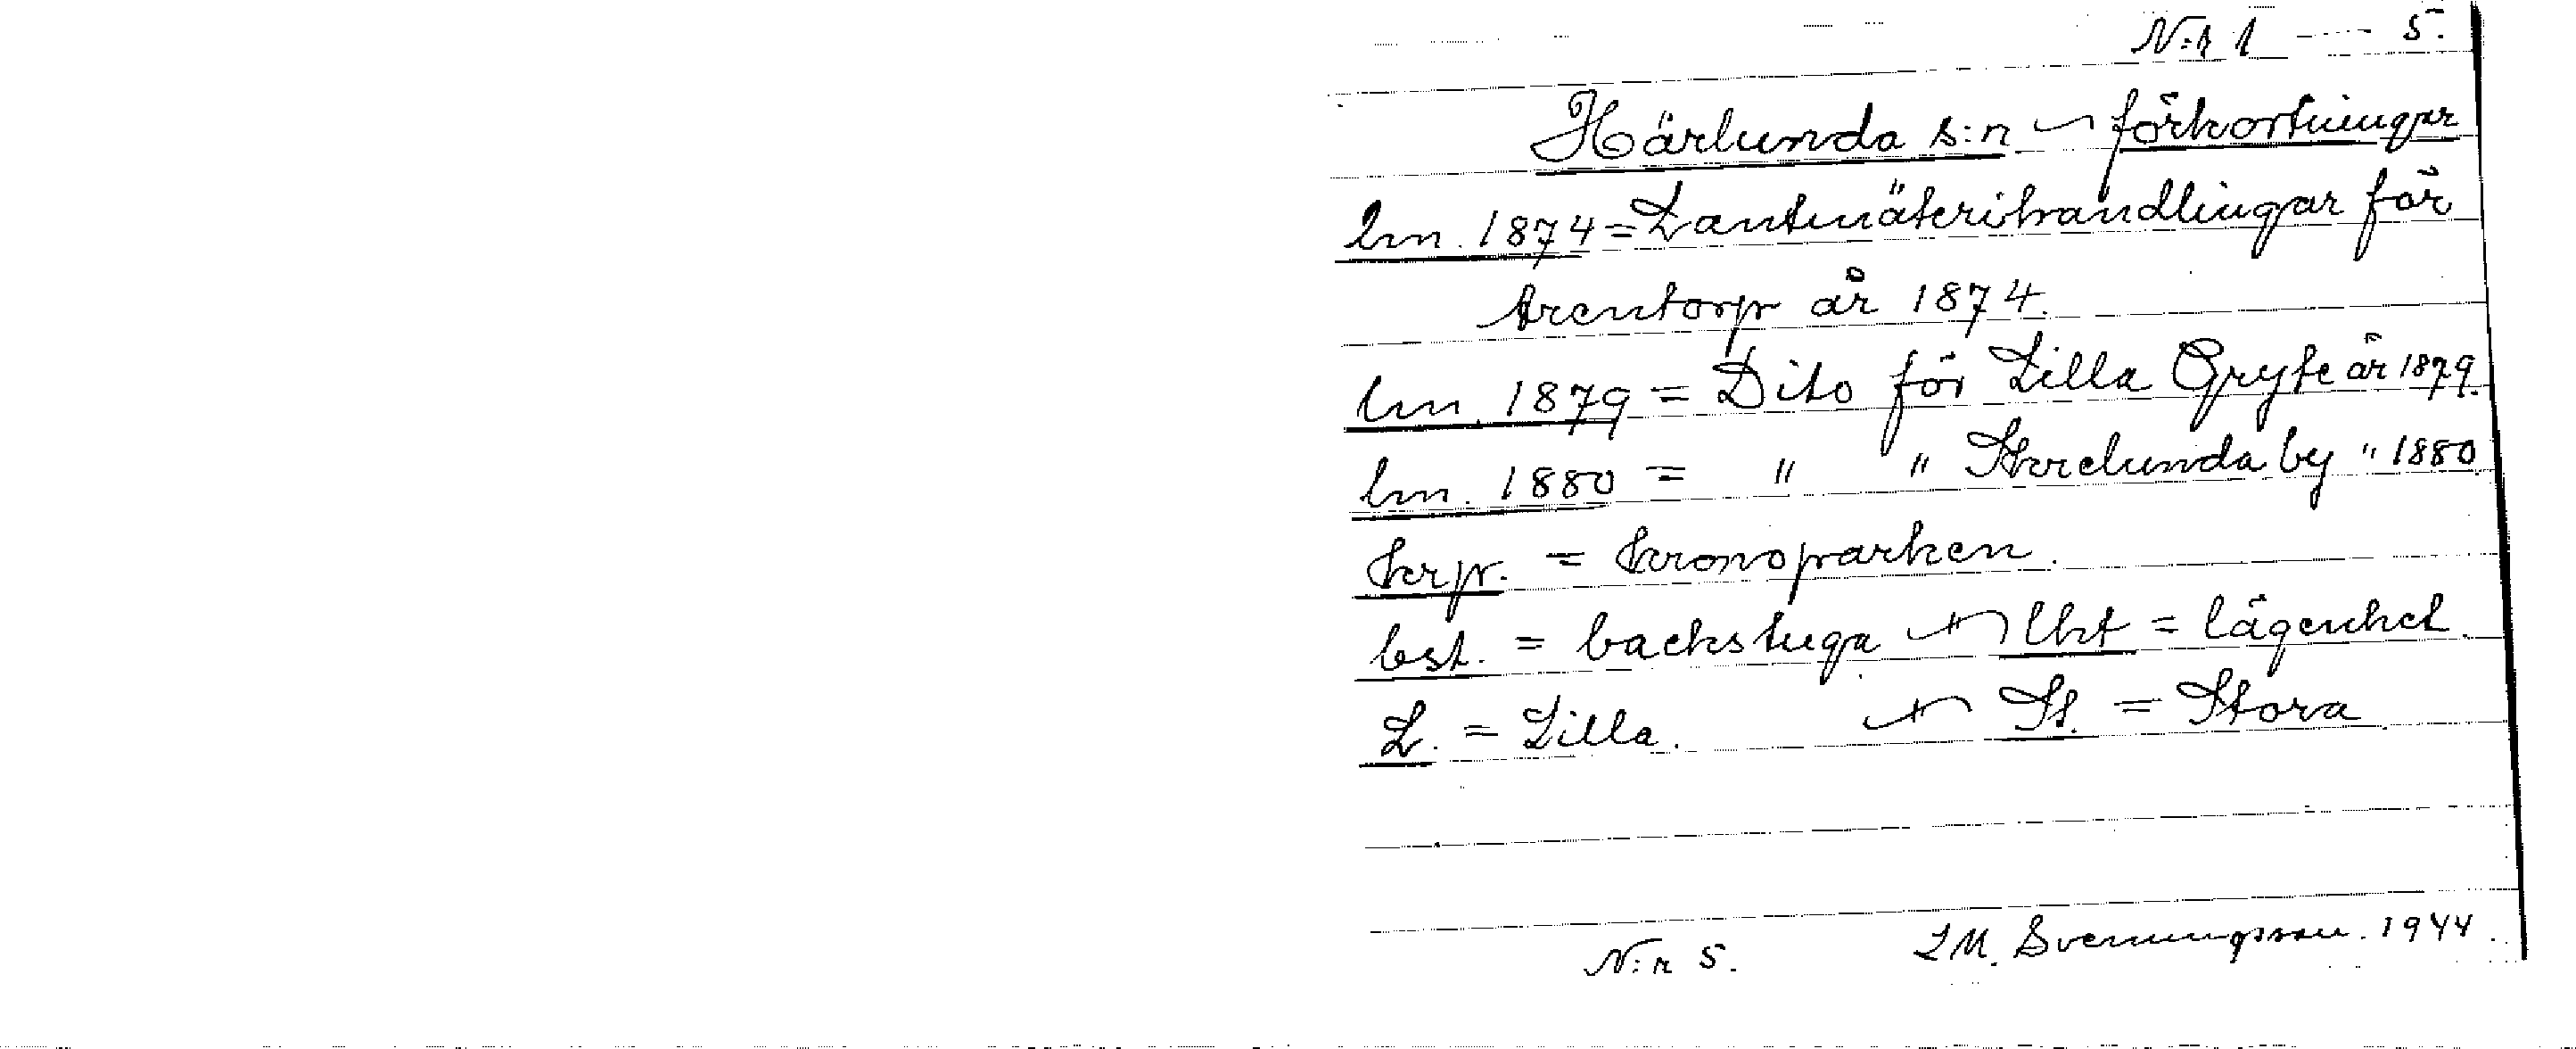 N:r 1 — 5.
Härlunda s:n — förkortningar
lm. 1874 = Lantmäterihandlingar för
Arentorp år 1874.
lm. 1879 = Dito för Lilla Gryfe år 1879.
lm. 1880 = " " Skvelunda by " 1880
krp. = kronoparken.
bst. = backstuga — lht = lägenhet.
L. = Lilla. — St. = Stora
N:r 5. LM. Svenungsson. 1944.